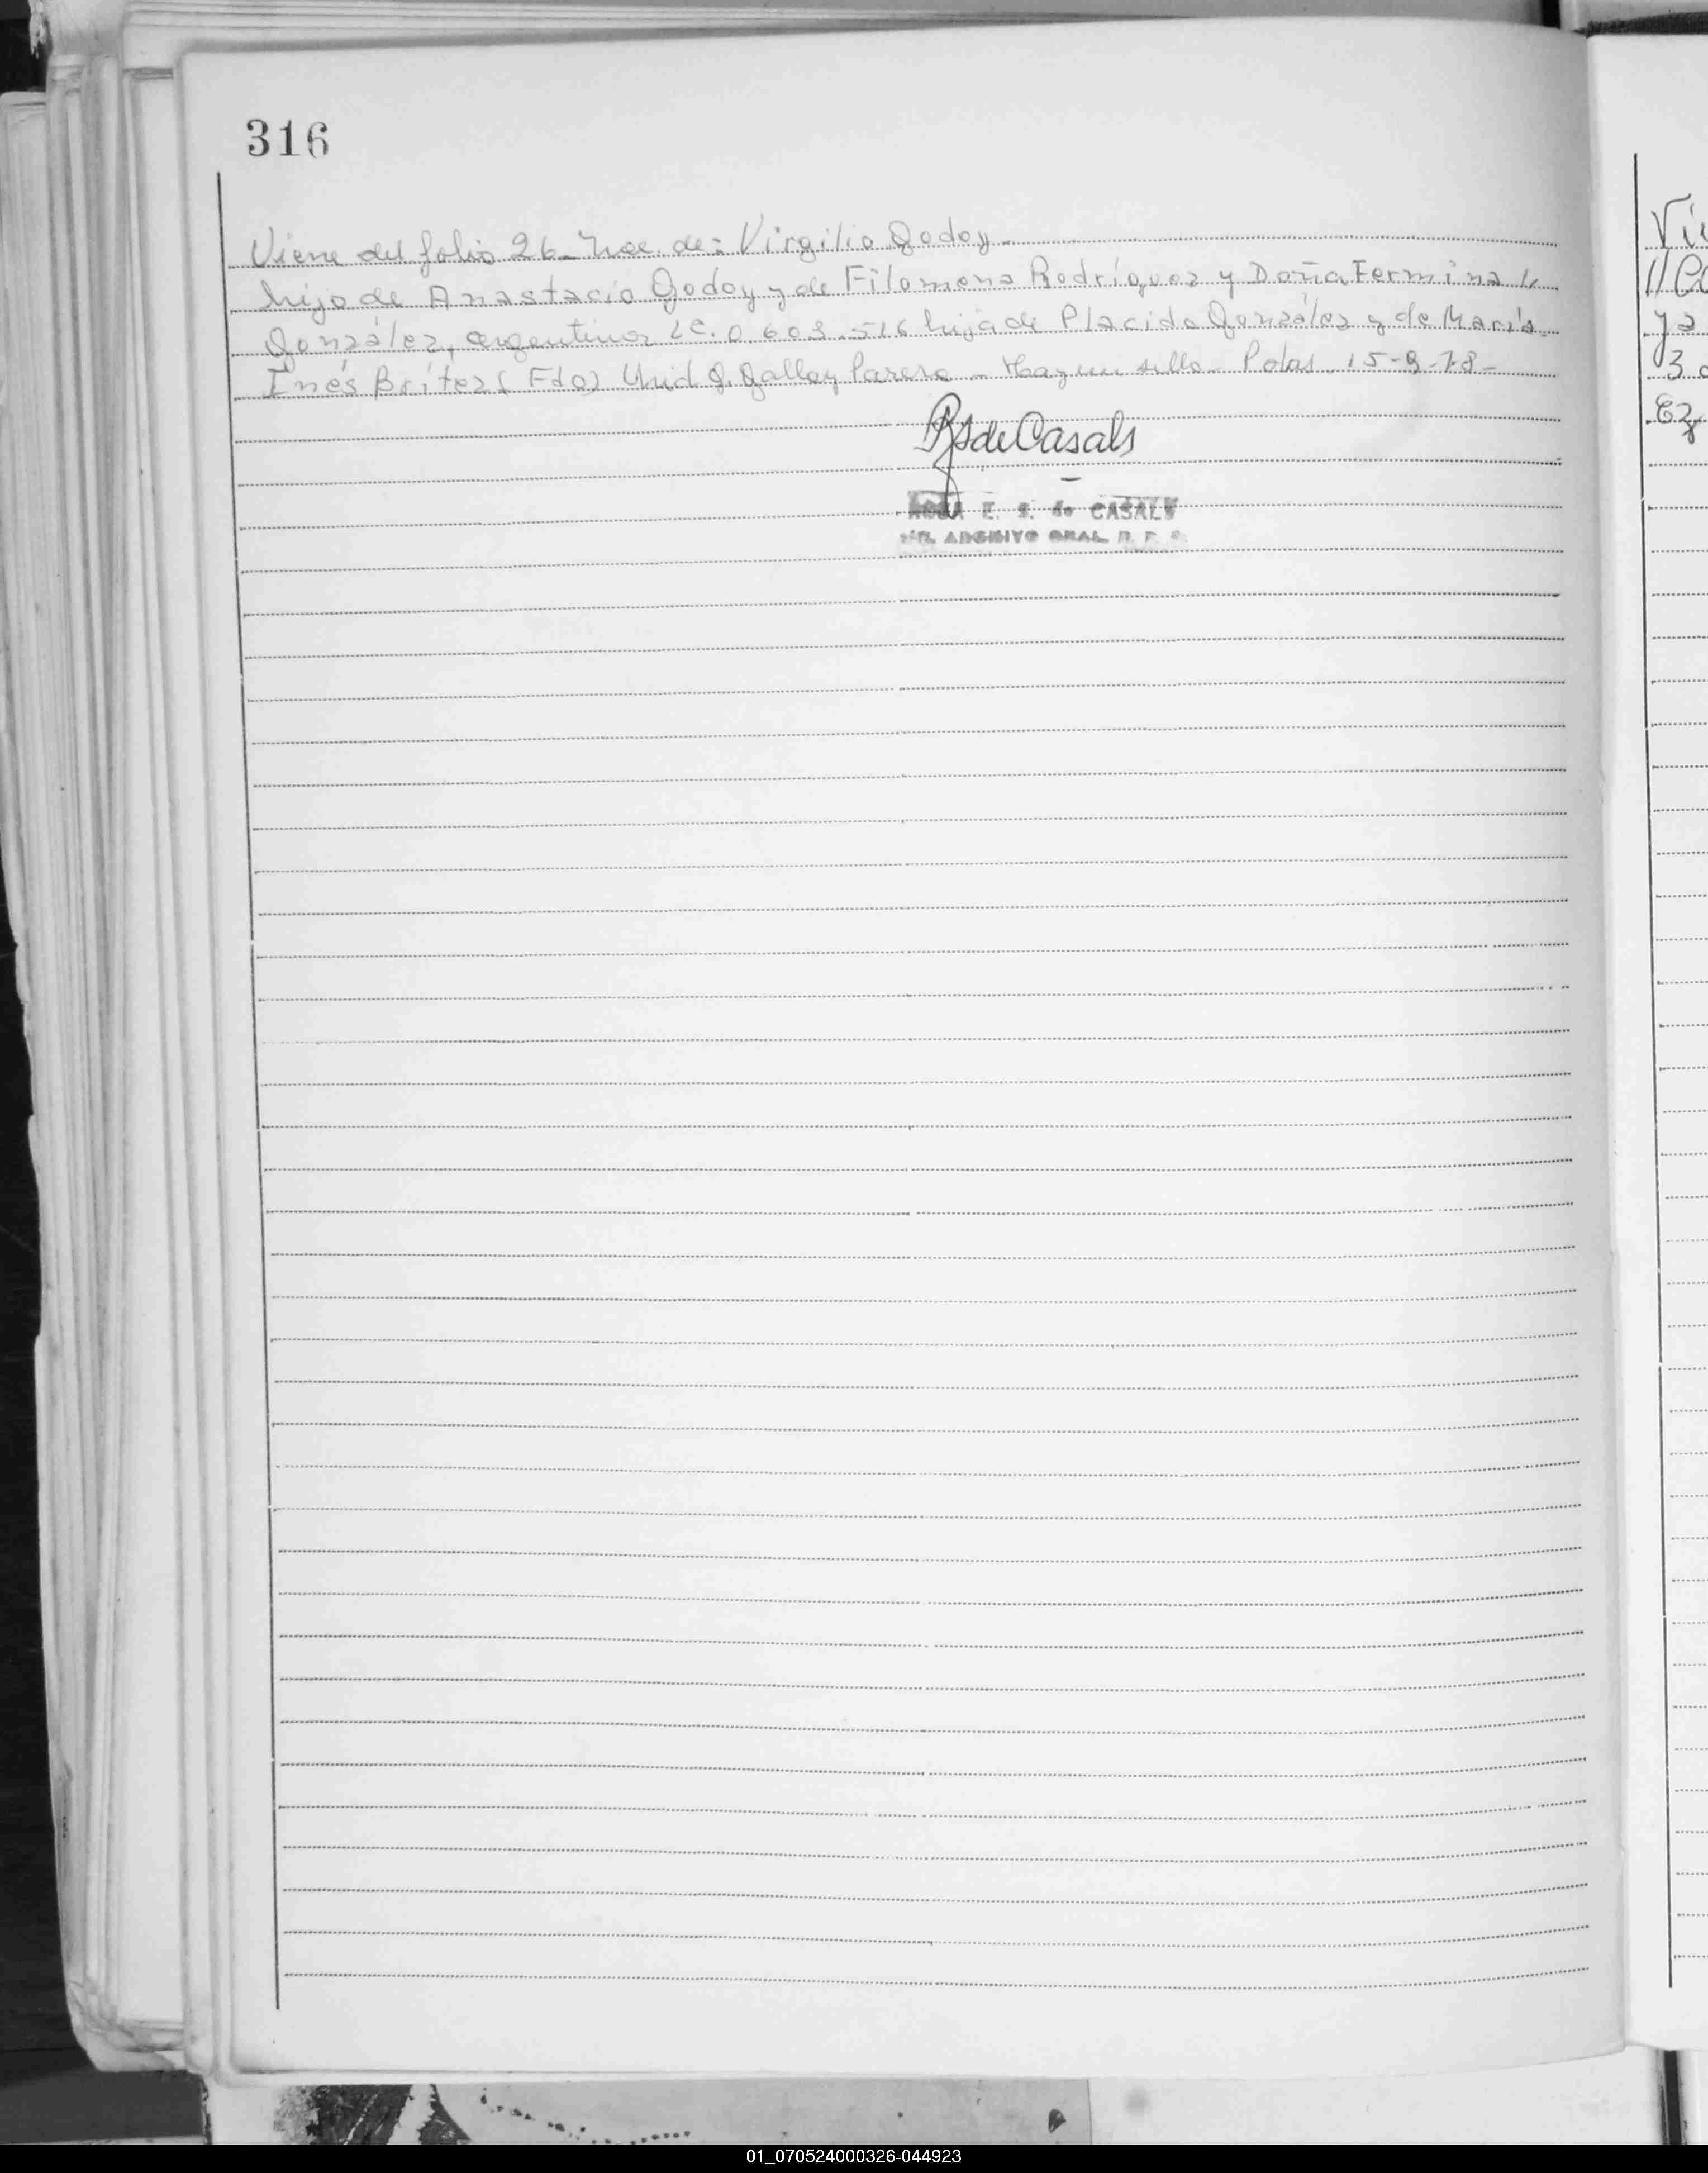 316
Viene del folio 26_ Nac. de: Virgilio Godoy_
hijo de Anastacio Godoy y de Filomena Rodríguez y Doña Fermina
González, argentina LC. 0.603.516 hija de Placido González y de María
Inés Brítez (Fdo) G. Galloy Parera _ Hay un sello_ Pdas. 15-9-78_
de Casals
E. S. de CASALS
ARCHIVO GRAL. R. P.
Vi
//Co
y a
3
Ez
01_070524000326-044923